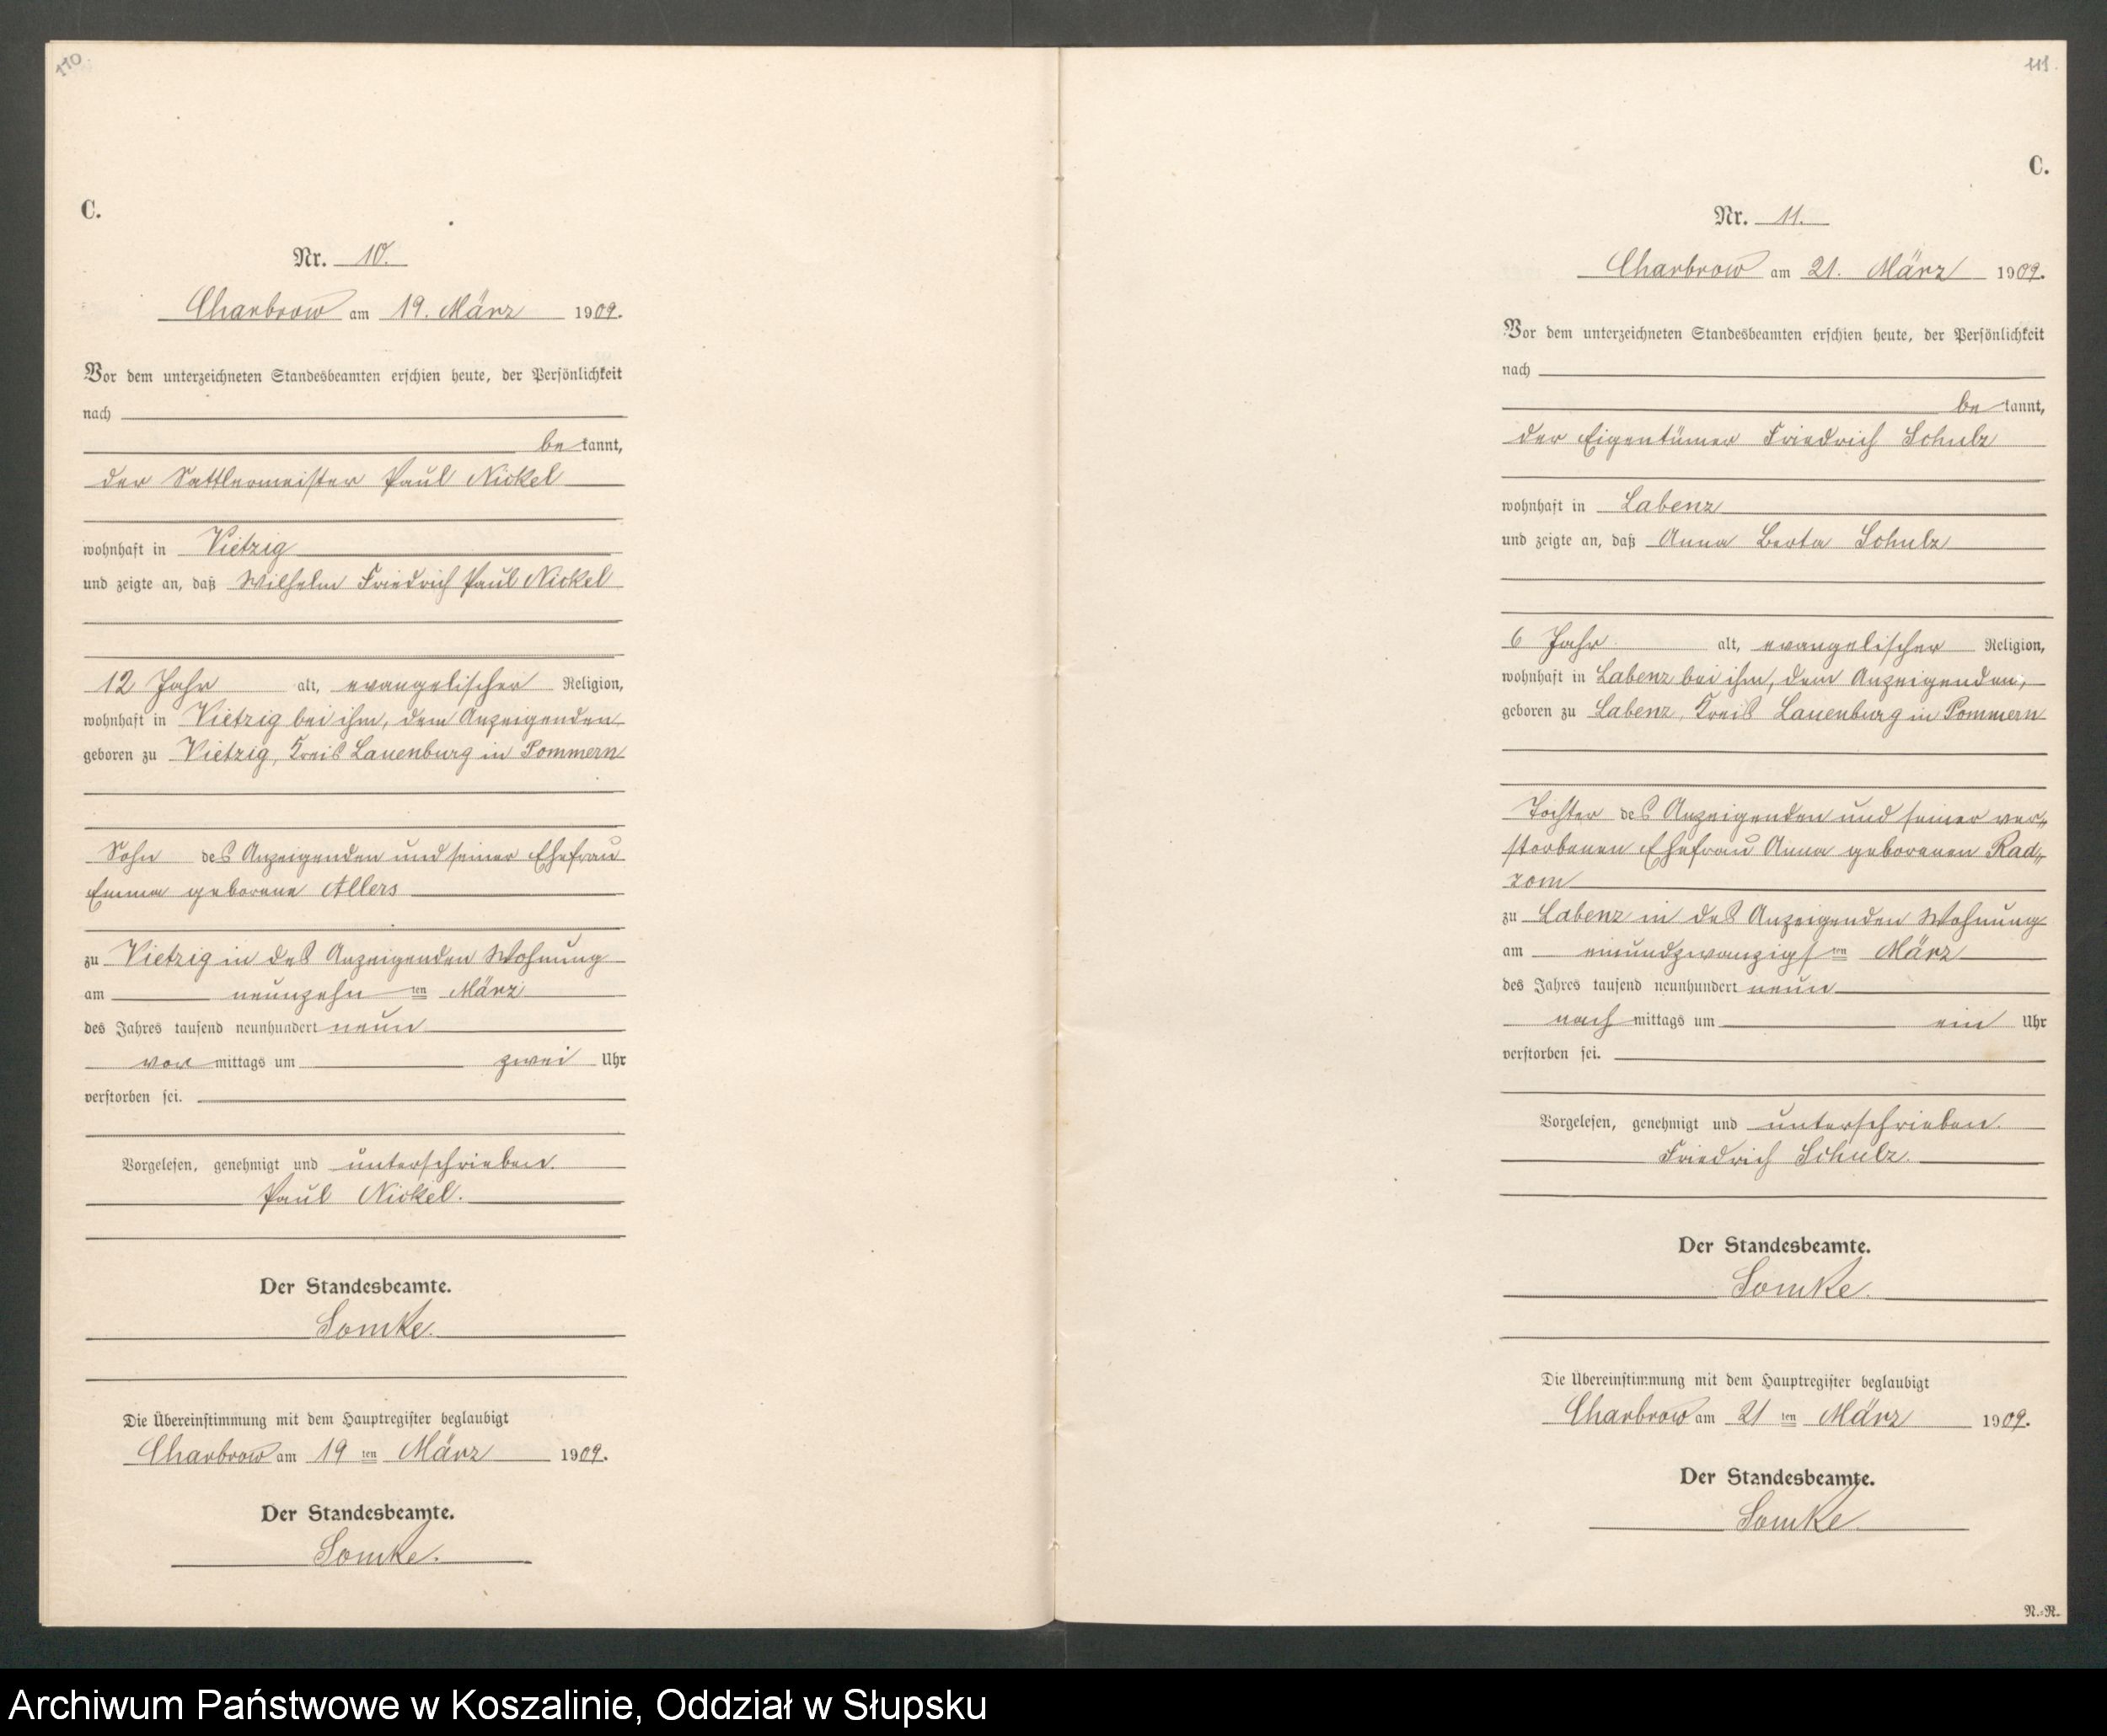 110
C.
Nr. 10.
Charbrow am 19. März 1909.
Vor dem unterzeichneten Standesbeamten erschien heute, der Persönlichkeit
nach
be kannt,
der Sattlermeister Paul Nickel
wohnhaft in Vietzig
und zeigte an, daß Wilhelm Friedrich Paul Nickel
12 Jahr alt, evangelischer Religion,
wohnhaft in Vietzig bei ihm, dem Anzeigenden
geboren zu Vietzig, Kreis Lauenburg in Pommern
Sohn des Anzeigenden und seiner Ehefrau
Emma geborene Allers
zu Vietzig in des Anzeigenden Wohnung
am neunzehn ten März
des Jahres tausend neunhundert neun
vor mittags um zwei Uhr
verstorben sei.
Vorgelesen, genehmigt und unterschrieben.
Paul Nickel.
Der Standesbeamte.
Lomke.
Die Übereinstimmung mit dem Hauptregister beglaubigt
Charbrow am 19 ten März 1909.
Der Standesbeamte.
Lomke.
111.
C.
Nr. 11.
Charbrow am 21. März 1909.
Vor dem unterzeichneten Standesbeamten erschien heute, der Persönlichkeit
nach
be kannt,
der Eigentümer Friedrich Schulz
wohnhaft in Labenz
und zeigte an, daß Anna Berta Schulz
6 Jahr alt, evangelischer Religion,
wohnhaft in Labenz bei ihm, dem Anzeigenden,
geboren zu Labenz, Kreis Lauenburg in Pommern
Tochter des Anzeigenden und seiner ver„
storbenen Ehefrau Anna geborenen Rad„
zom
zu Labenz in des Anzeigenden Wohnung
am einundzwanzigs ten März
des Jahres tausend neunhundert neun
nach mittags um ein Uhr
verstorben sei.
Vorgelesen, genehmigt und unterschrieben.
Friedrich Schulz.
Der Standesbeamte.
Lomke.
Die Übereinstimmung mit dem Hauptregister beglaubigt
Charbrow am 21 ten März 1909.
Der Standesbeamte.
Lomke.
N.=R.
Archiwum Państwowe w Koszalinie, Oddział w Słupsku